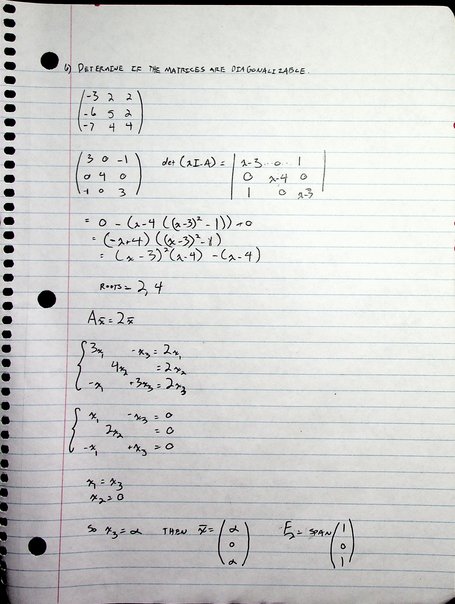 6) DETERMINE IF THE MATRICES ARE DIAGONALIZABLE.
(-3 2 2
-6 5 2
-7 4 4)
(3 0 -1
0 4 0
-1 0 3) det(λI-A) = |λ-3 0 1
0 λ-4 0
1 0 λ-3|
= 0 - (λ-4 ((λ-3)² - 1)) + 0
= (-λ+4) ((λ-3)² - 1)
= (λ-3)²(λ-4) - (λ-4)
ROOTS = 2, 4
Ax̄ = 2x̄
{3x₁ - x₃ = 2x₁
4x₂ = 2x₂
-x₁ + 3x₃ = 2x₃
{x₁ - x₃ = 0
2x₂ = 0
-x₁ + x₃ = 0
x₁ = x₃
x₂ = 0
SO x₃ = α THEN x̄ = (α
0
α) E₂ = SPAN (1
0
1)